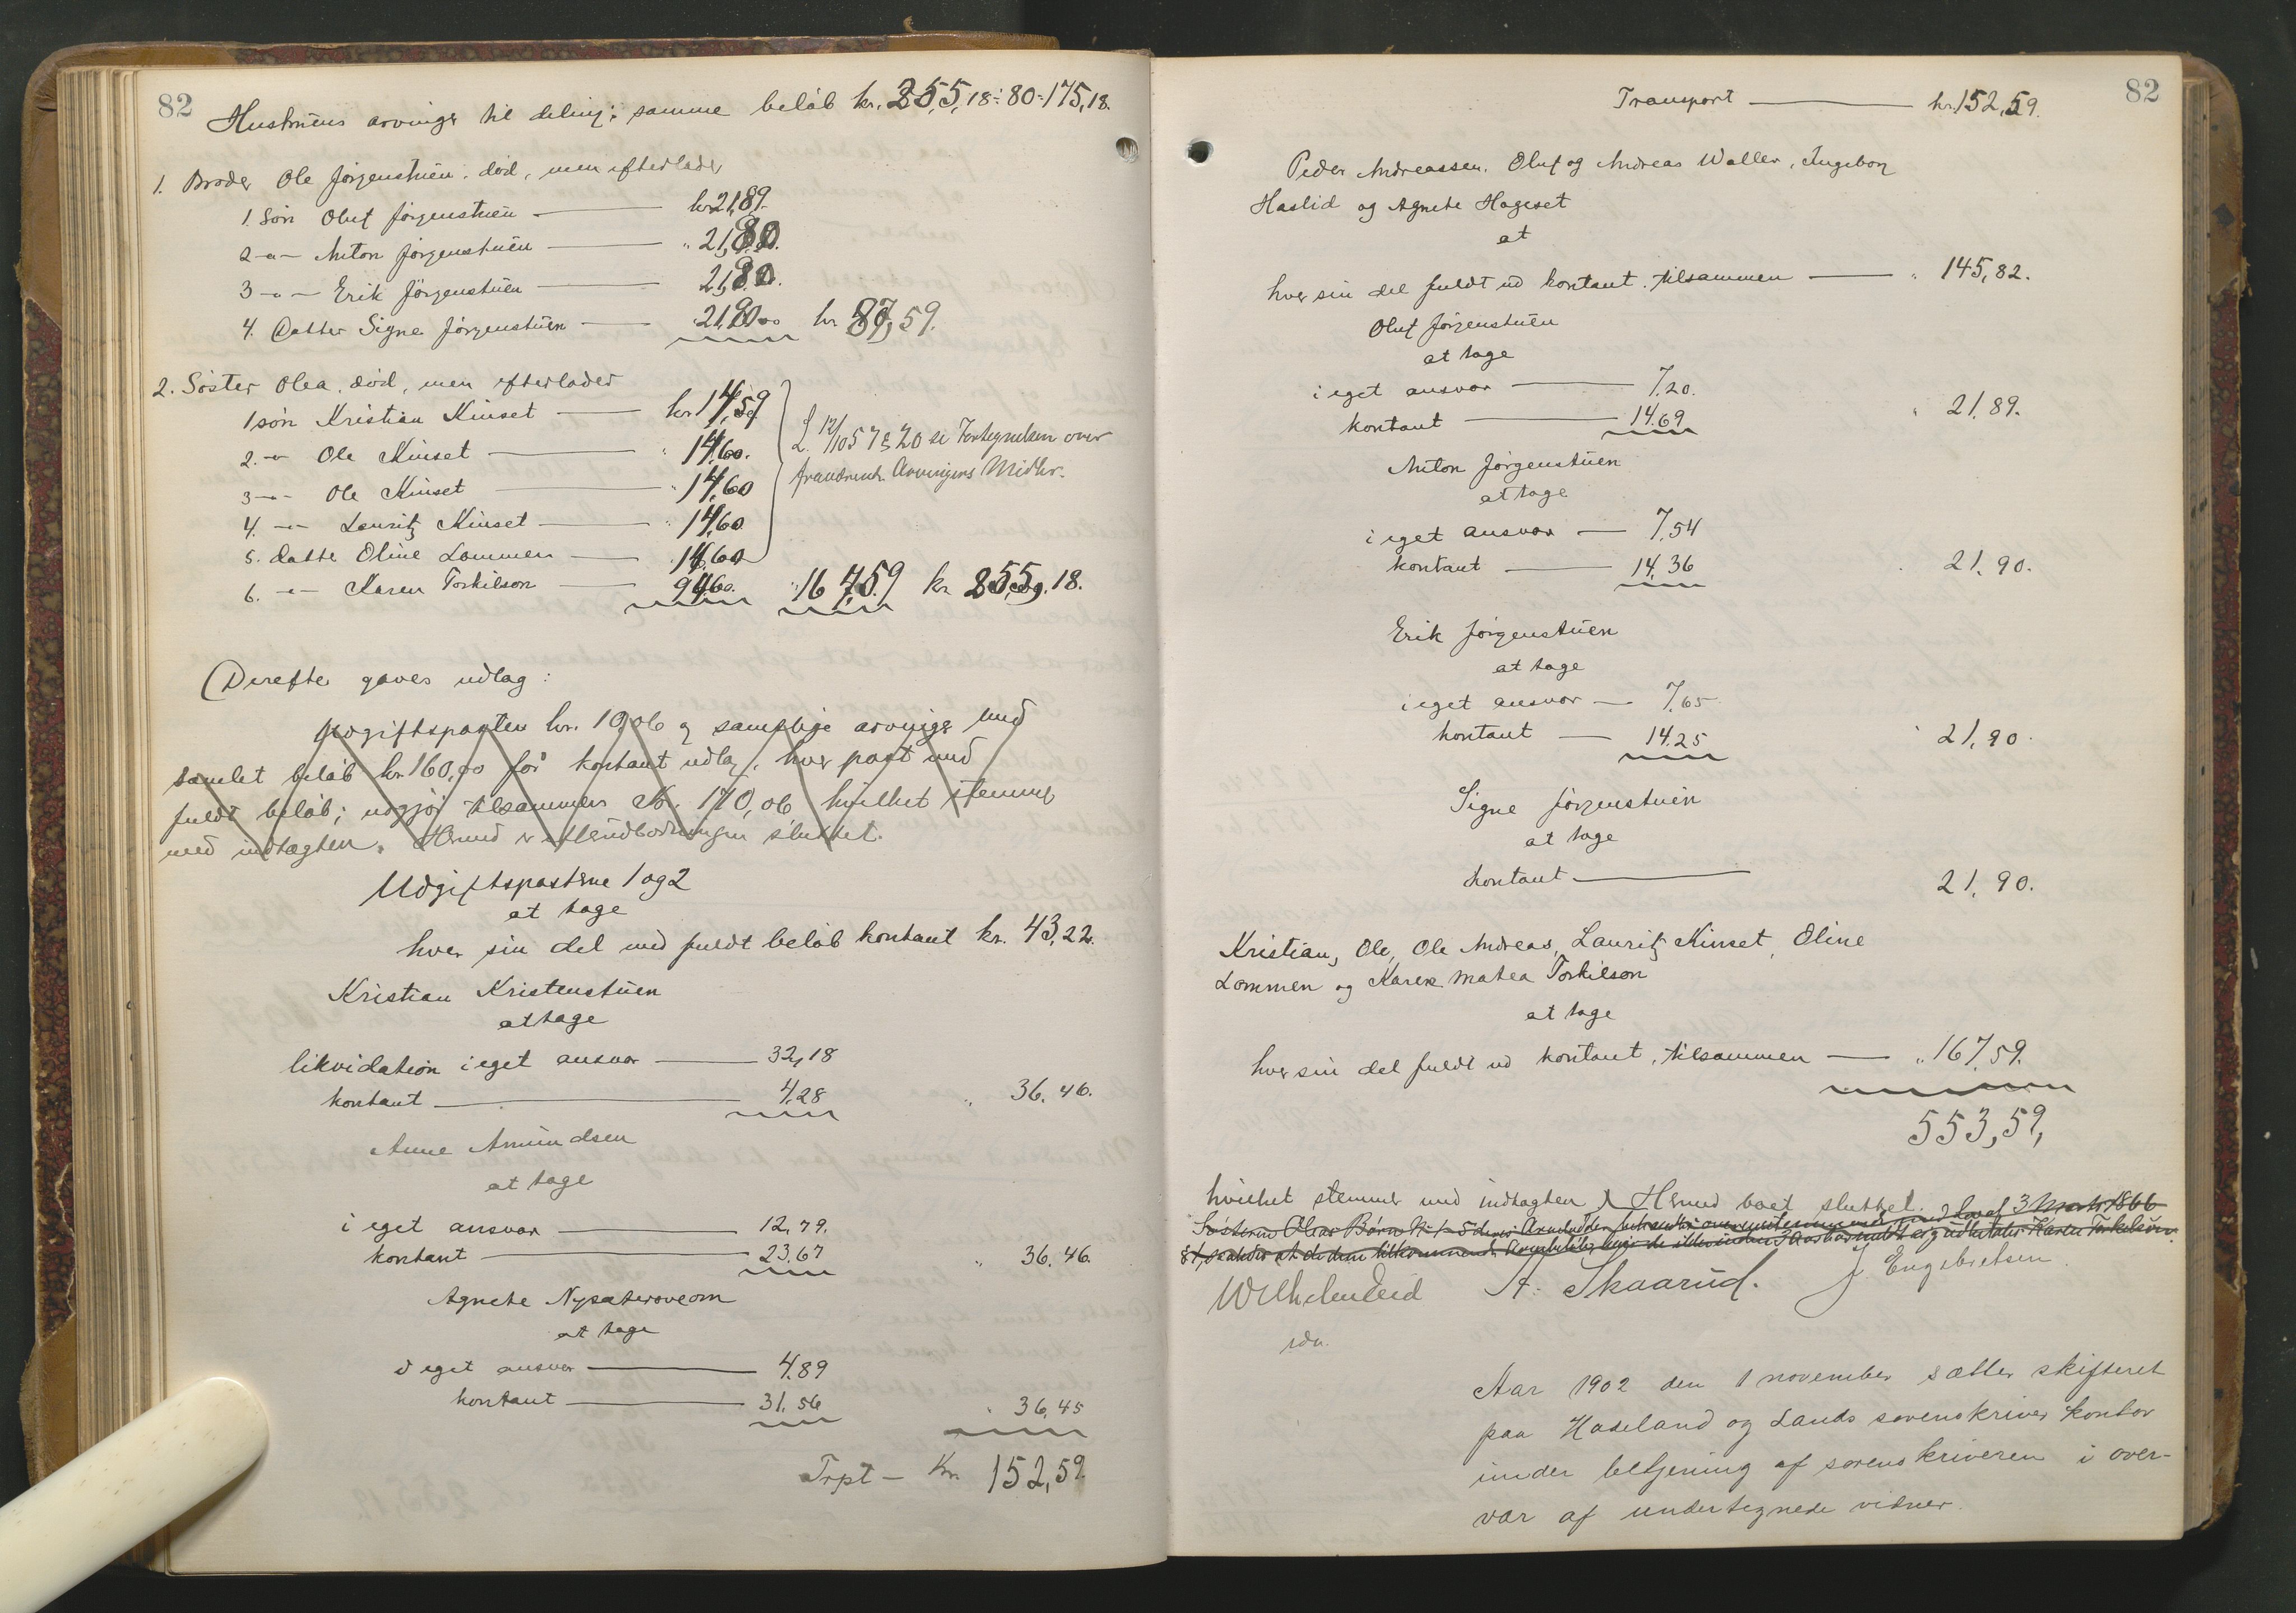 82
Hustruens arvinger til deling: samme beløb kr. 255,18 ÷ 80 = 175,18.
1. Broder Ole Jørgenstuen. død, men efterlader
1. Søn Oluf Jørgenstuen — kr 21,89.
2 -"- Anton Jørgenstuen — " 21,90.
3 -"- Erik Jörgenstuen — 21,90.
4. Datter Signe Jørgenstuen — 21,90 kr 87,59.
2. Søster Olea. død, men efterlader
1 søn Kristian Kinset — kr 14,59
2. -"- Ole Kinset — " 14,60.
3 -"- Ole Kinset — " 14,60
4. -"- Lauritz Kinset — " 14,60
5. datte Oline Lommen — 14,60
6. -"- Karen Torkilson — 94,60. " 167,59 kr 255,18.
L 12/105 7 & 20 se Fortegnelsen over
fraværende Arvingers Midler.
Derefte gaves udlag:
Udgiftsposten kr. 10,06 og samtlige arvinge med
samlet beløb kr. 160,00 får kontant udlæg, hver post med
fuldt beløb; udgjør tilsammen Kr. 170,06 hvilket stemmer
med indtægten. Hermed er sluttet.
Udgiftsposterne 1 og 2
at tage
hver sin del med fuldt beløb kontant kr. 43,22.
Kristian Kristenstuen
at tage
likvidation i eget ansvar — 32,18
kontant — 4,28 " 36.46.
Anne Amundsen
at tage
i eget ansvar — 12,79.
kontant — 23.67 " 36.46.
Agnete Nysæterøveom
at tage
i eget ansvar — 4.89
kontant — 31.56 " 36,45
Trpt — Kr. 152,59
82
Transport — kr. 152,59.
Peder Andreassen. Oluf og Andreas Waller, Ingeborg
Haslid og Agnete Hageset
at
hver sin del fuldt ud kontant. tilsammen — " 145,82.
Oluf Jørgenstuen
at tage
i eget ansvar — 7.20.
kontant — 14.69 " 21.89.
Anton Jørgenstuen
at tage
i eget ansvar — 7,54
kontant — 14.36 21.90.
Erik Jørgenstuen
at tage
i eget ansvar — 7.65
kontant — 14.25 " 21.90.
Signe Jørgenstuen
at tage
kontant — 21.90.
Kristian, Ole, Ole Andreas, Lauritz Kinset, Oline
Lommen og Karen Matea Torkilson
at tage
hver sin del fuldt ud kontant, tilsammen — " 167,59.
553,59,
hvilket stemmer med indtægten. Hermed boet sluttet.
Søsteren Oleas Børn No 1-5 lov af 3 Marts 1866
Karen Torkelson.
A. Skaarud. J Engebretsen
Aar 1902 den 1 november sattes skifteret
paa Hadeland og Lands sorenskriver kontor
under betjening af sorenskriveren i over-
vær af undertegnede vidner.